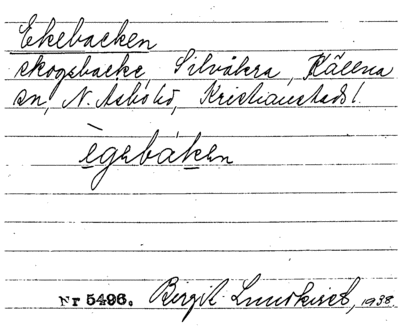 Ekebacken
skogsbacke, Silvåkra, Källna
sn, N. Åsbo hd, Kristianstads l.
ègebáken
Nr 5496. Birgit Lundkvist, 1938.